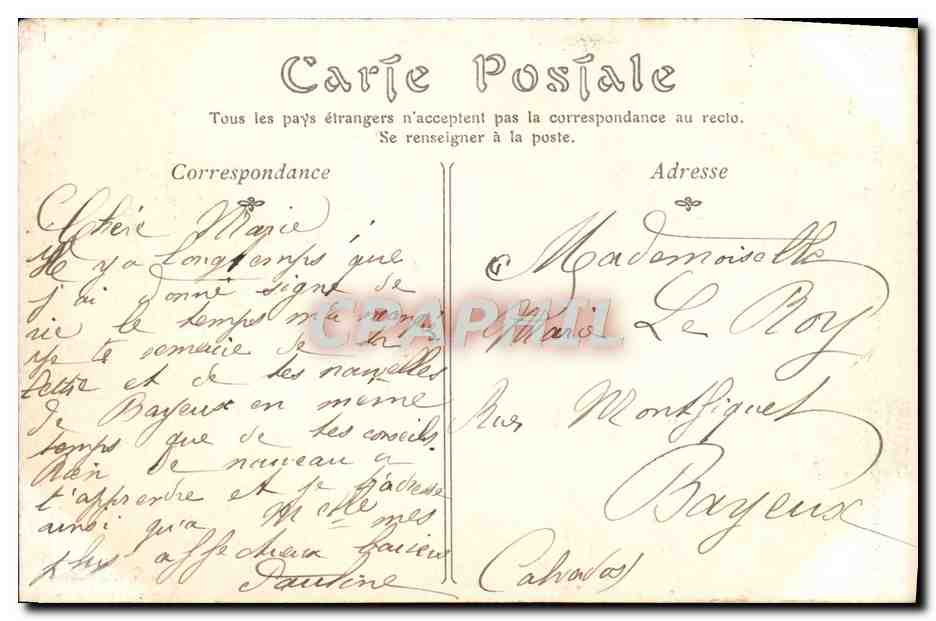 Carte Postale
Tous les pays étrangers n'acceptent pas la correspondance au recto.
Se renseigner à la poste.
Correspondance
Chère Marie
Il y a longtemps que
j'ai donné signe de
vie le temps m'a manqué
Je te remercie de ta
lettre et de tes nouvelles
de Bayeux en même
temps que de tes conseils
Rien de nouveau a
t'apprendre et je t'adresse
ainsi qu'a Melle mes
plus affectueux baisers
Pauline
Adresse
Mademoiselle
Marie Le Roy
Rue Montfiquet
Bayeux
Calvados
CPAPHIL